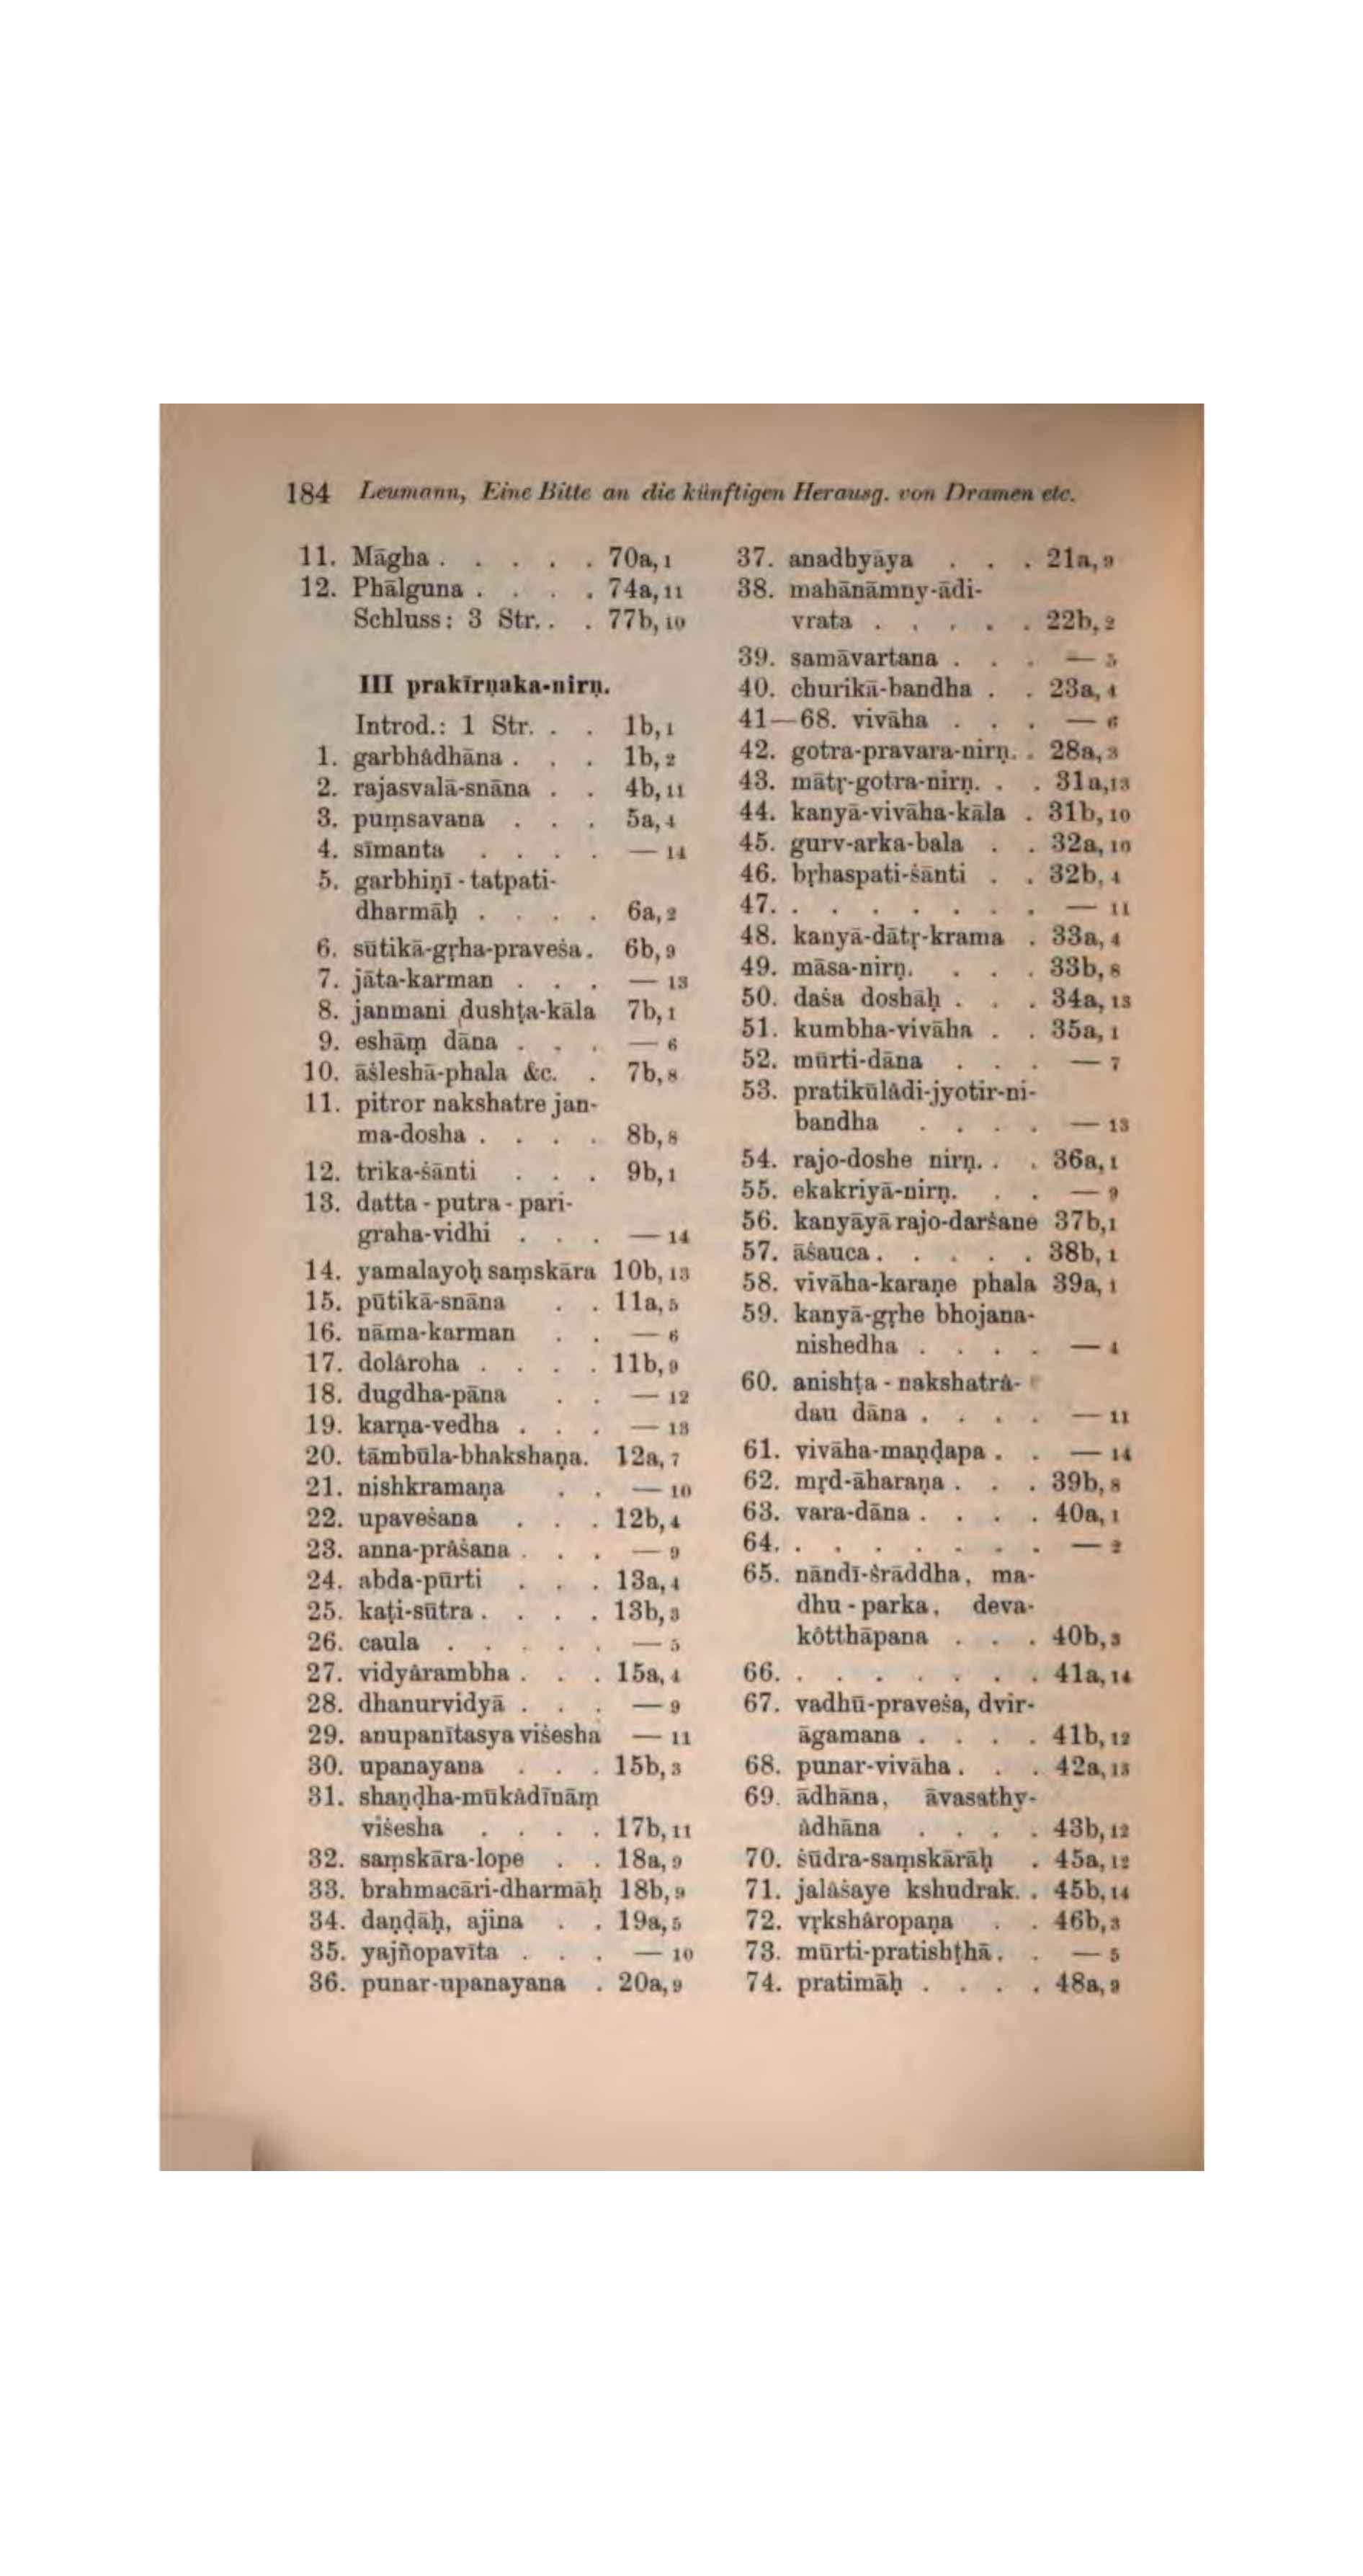 184 Leumann, Eine Bitte an die künftigen Herausg. von Dramen etc.
11. Māgha . . . . . 70a, 1
12. Phālguna . . . . 74a, 11
Schluss: 3 Str. . . 77b, 10
III prakīrṇaka-nirṇ.
Introd.: 1 Str. . . 1b, 1
1. garbhâdhāna . . . 1b, 2
2. rajasvalā-snāna . . 4b, 11
3. puṃsavana . . . 5a, 4
4. sīmanta . . . . — 14
5. garbhiṇī - tatpati-
dharmāḥ . . . . 6a, 2
6. sūtikā-gṛha-praveśa . 6b, 9
7. jāta-karman . . . — 13
8. janmani dushṭa-kāla 7b, 1
9. eshāṃ dāna . . . — 6
10. āśleshā-phala &c. . 7b, 8
11. pitror nakshatre jan-
ma-dosha . . . . 8b, 8
12. trika-śānti . . . 9b, 1
13. datta - putra - pari-
graha-vidhi . . . — 14
14. yamalayoḥ saṃskāra 10b, 13
15. pūtikā-snāna . . 11a, 5
16. nāma-karman . . — 6
17. dolâroha . . . . 11b, 9
18. dugdha-pāna . . — 12
19. karṇa-vedha . . . — 13
20. tāmbūla-bhakshaṇa. 12a, 7
21. nishkramaṇa . . — 10
22. upaveśana . . . 12b, 4
23. anna-prâśana . . . — 9
24. abda-pūrti . . . 13a, 4
25. kaṭi-sūtra . . . . 13b, 3
26. caula . . . . . — 5
27. vidyârambha . . . 15a, 4
28. dhanurvidyā . . . — 9
29. anupanītasya viśesha — 11
30. upanayana . . . 15b, 3
31. shaṇḍha-mūkâdīnāṃ
viśesha . . . . 17b, 11
32. saṃskāra-lope . . 18a, 9
33. brahmacāri-dharmāḥ 18b, 9
34. daṇḍāḥ, ajina . . 19a, 5
35. yajñopavīta . . . — 10
36. punar-upanayana . 20a, 9
37. anadhyāya . . . 21a, 9
38. mahānāmny-ādi-
vrata . . . . . 22b, 2
39. samāvartana . . . — 5
40. churikā-bandha . . 23a, 4
41—68. vivāha . . . — 6
42. gotra-pravara-nirṇ. . 28a, 3
43. mātṛ-gotra-nirṇ. . . 31a, 13
44. kanyā-vivāha-kāla . 31b, 10
45. gurv-arka-bala . . 32a, 10
46. bṛhaspati-śānti . . 32b, 4
47. . . . . . . . — 11
48. kanyā-dātṛ-krama . 33a, 4
49. māsa-nirṇ. . . . 33b, 8
50. daśa doshāḥ . . . 34a, 13
51. kumbha-vivāha . . 35a, 1
52. mūrti-dāna . . . — 7
53. pratikūlâdi-jyotir-ni-
bandha . . . . — 13
54. rajo-doshe nirṇ. . . 36a, 1
55. ekakriyā-nirṇ. . . — 9
56. kanyāyā rajo-darśane 37b, 1
57. āśauca . . . . . 38b, 1
58. vivāha-karaṇe phala 39a, 1
59. kanyā-gṛhe bhojana-
nishedha . . . . — 4
60. anishṭa - nakshatrâ-
dau dāna . . . . — 11
61. vivāha-maṇḍapa . . — 14
62. mṛd-āharaṇa . . . 39b, 8
63. vara-dāna . . . . 40a, 1
64. . . . . . . . — 2
65. nāndī-śrāddha, ma-
dhu - parka, deva-
kôtthāpana . . . 40b, 3
66. . . . . . . . 41a, 14
67. vadhū-praveśa, dvir-
āgamana . . . . 41b, 12
68. punar-vivāha . . . 42a, 13
69. ādhāna, āvasathy-
âdhāna . . . . 43b, 12
70. śūdra-saṃskārāḥ . 45a, 12
71. jalâśaye kshudrak. . 45b, 14
72. vṛkshâropaṇa . . 46b, 3
73. mūrti-pratishṭhā . . — 5
74. pratimāḥ . . . . 48a, 9